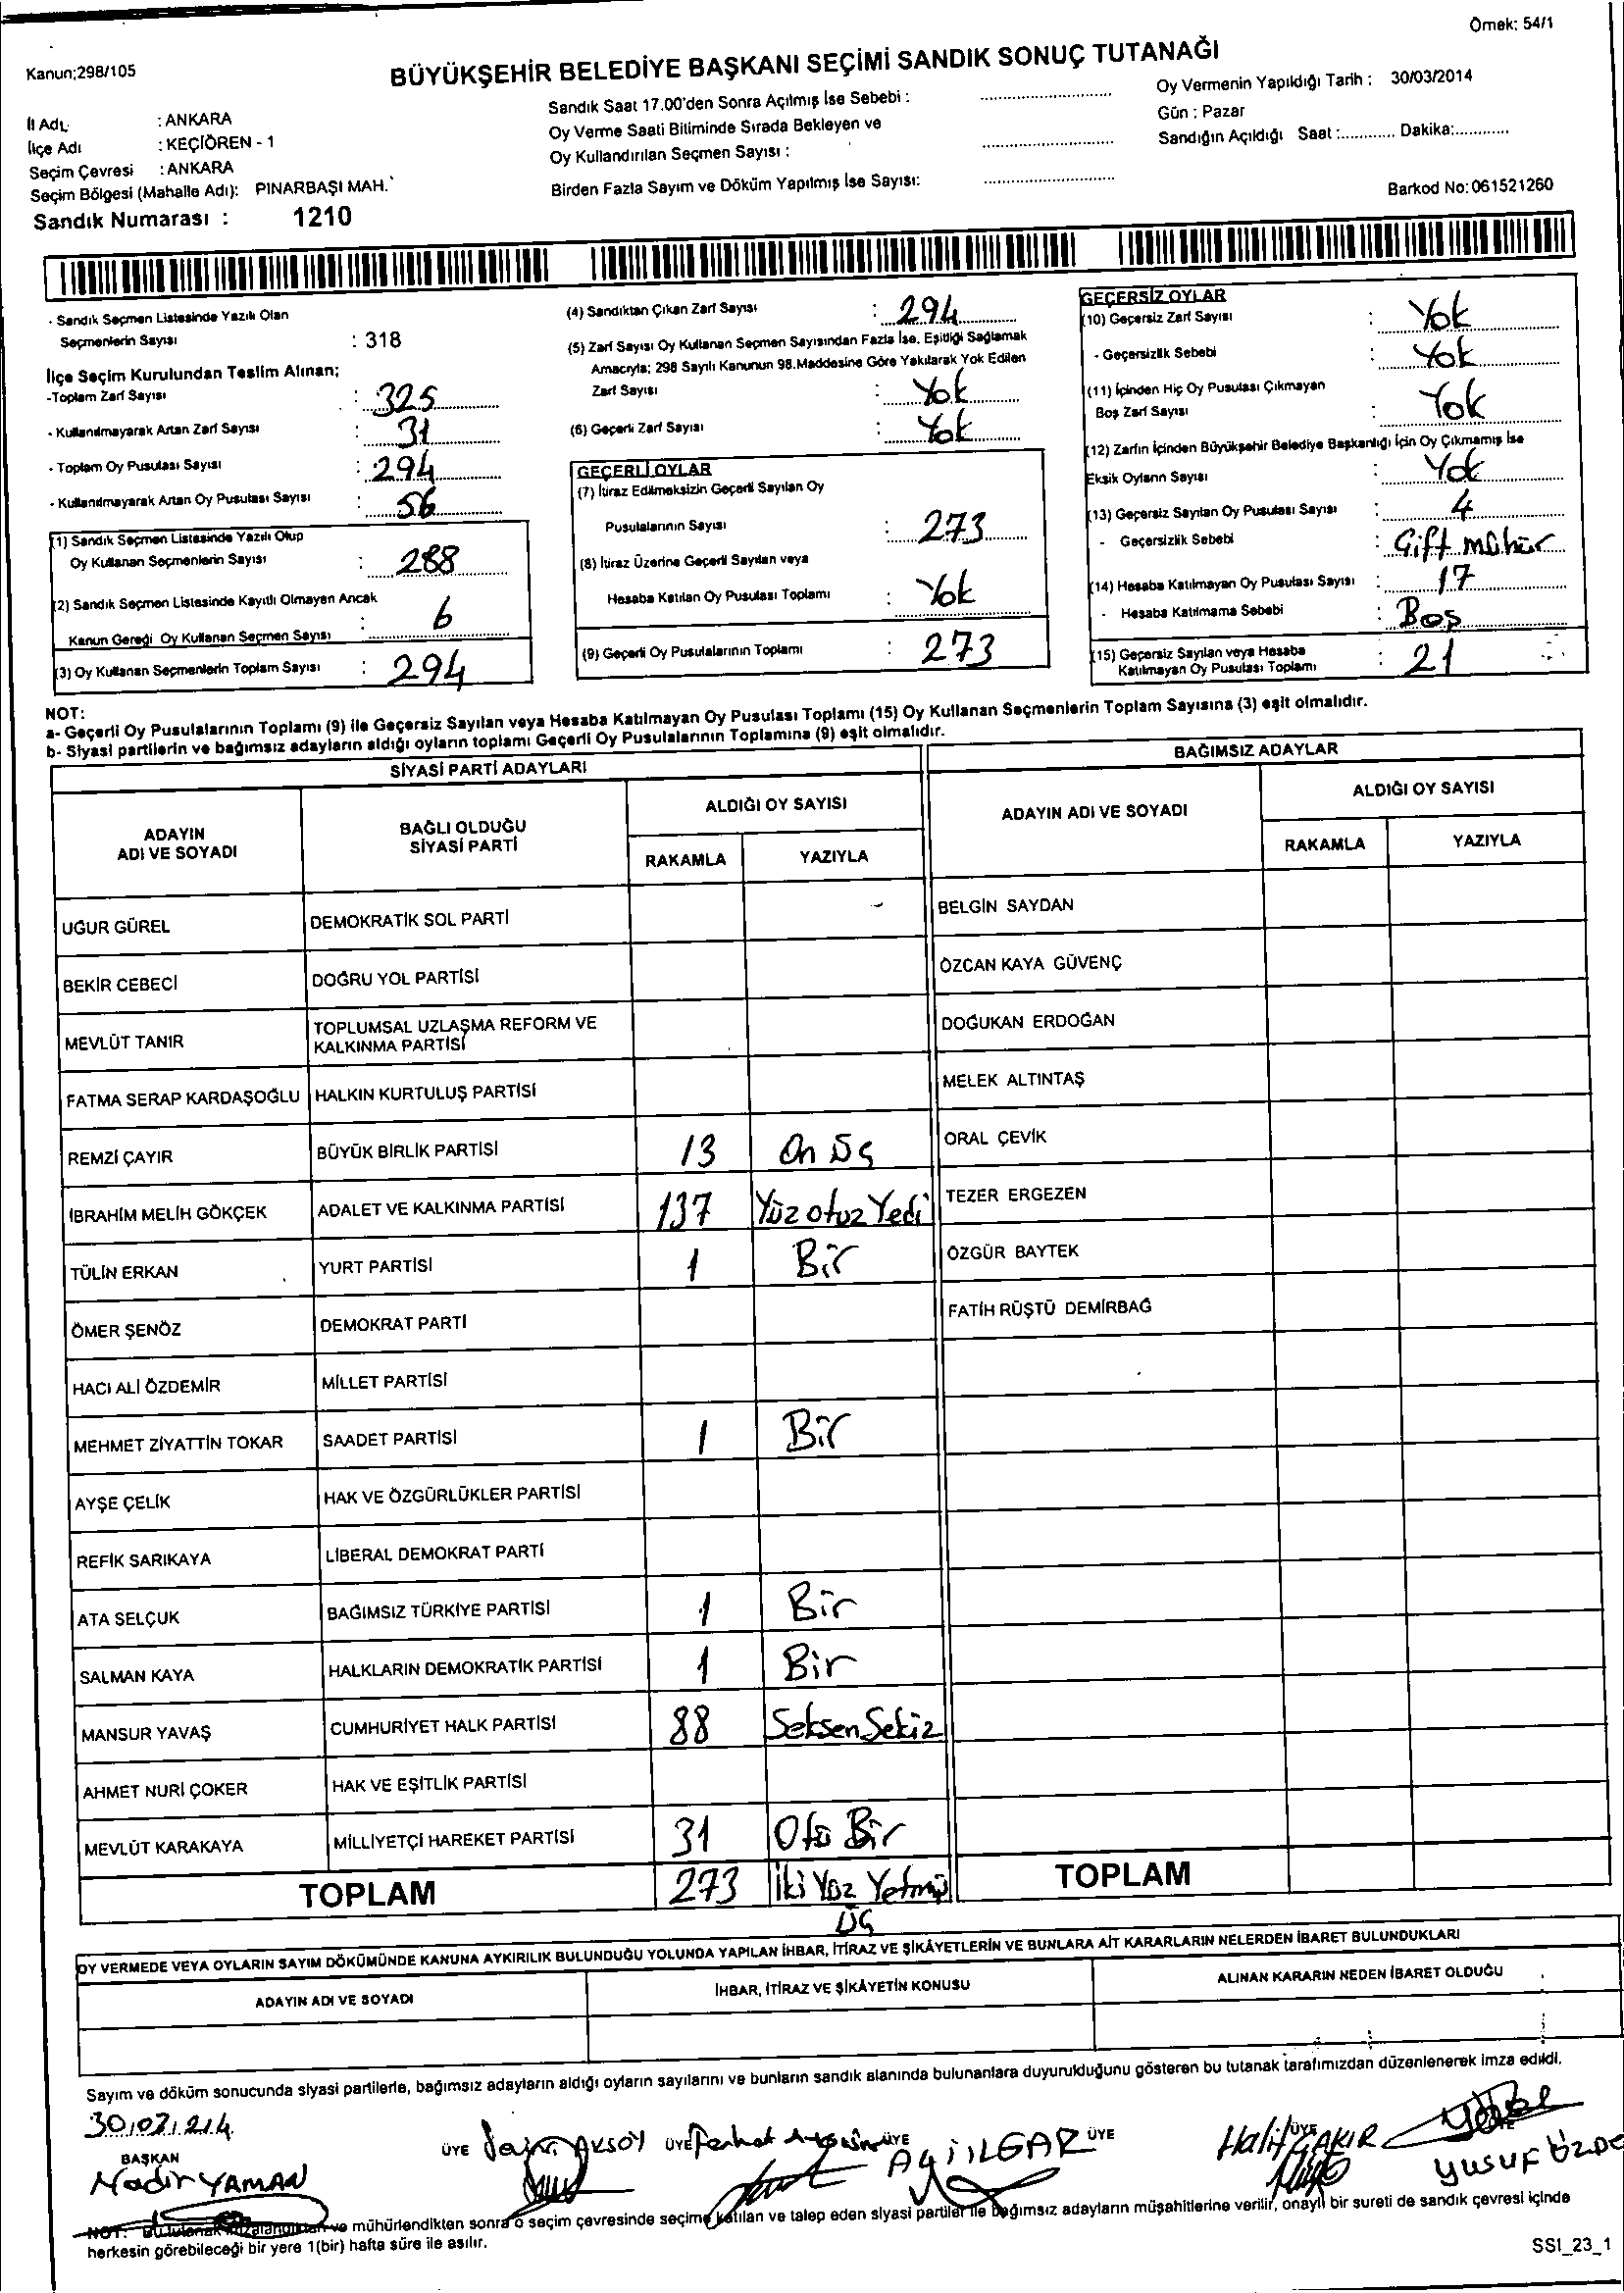 Örnek: 54/1
Kanun;298/105
BÜYÜKŞEHİR BELEDİYE BAŞKANI SEÇİMİ SANDIK SONUÇ TUTANAĞI
İl Adı : ANKARA
İlçe Adı : KEÇİÖREN - 1
Seçim Çevresi : ANKARA
Seçim Bölgesi (Mahalle Adı): PINARBAŞI MAH.
Sandık Numarası : 1210
Sandık Saat 17.00'den Sonra Açılmış İse Sebebi :
Oy Verme Saati Bitiminde Sırada Bekleyen ve
Oy Kullandırılan Seçmen Sayısı :
Birden Fazla Sayım ve Döküm Yapılmış İse Sayısı:
Oy Vermenin Yapıldığı Tarih : 30/03/2014
Gün : Pazar
Sandığın Açıldığı Saat :............ Dakika:............
Barkod No: 061521260
- Sandık Seçmen Listesinde Yazılı Olan
Seçmenlerin Sayısı : 318
İlçe Seçim Kurulundan Teslim Alınan;
-Toplam Zarf Sayısı : 325
- Kullanılmayarak Artan Zarf Sayısı : 31
- Toplam Oy Pusulası Sayısı : 294
- Kullanılmayarak Artan Oy Pusulası Sayısı : 56
(1) Sandık Seçmen Listesinde Yazılı Olup
Oy Kullanan Seçmenlerin Sayısı : 288
(2) Sandık Seçmen Listesinde Kayıtlı Olmayan Ancak
Kanun Gereği Oy Kullanan Seçmen Sayısı : 6
(3) Oy Kullanan Seçmenlerin Toplam Sayısı : 294
(4) Sandıktan Çıkan Zarf Sayısı : 294
(5) Zarf Sayısı Oy Kullanan Seçmen Sayısından Fazla İse, Eşitliği Sağlamak
Amacıyla; 298 Sayılı Kanunun 98.Maddesine Göre Yakılarak Yok Edilen
Zarf Sayısı : Yok
(6) Geçerli Zarf Sayısı : Yok
GEÇERLİ OYLAR
(7) İtiraz Edilmeksizin Geçerli Sayılan Oy
Pusulalarının Sayısı : 273
(8) İtiraz Üzerine Geçerli Sayılan veya
Hesaba Katılan Oy Pusulası Toplamı : Yok
(9) Geçerli Oy Pusulalarının Toplamı : 273
GEÇERSİZ OYLAR
(10) Geçersiz Zarf Sayısı : Yok
- Geçersizlik Sebebi : Yok
(11) İçinden Hiç Oy Pusulası Çıkmayan
Boş Zarf Sayısı : Yok
(12) Zarfın İçinden Büyükşehir Belediye Başkanlığı İçin Oy Çıkmamış İse
Eksik Oyların Sayısı : Yok
(13) Geçersiz Sayılan Oy Pusulası Sayısı : 4
- Geçersizlik Sebebi : Çift mühür
(14) Hesaba Katılmayan Oy Pusulası Sayısı : 17
- Hesaba Katılmama Sebebi : Boş
(15) Geçersiz Sayılan veya Hesaba
Katılmayan Oy Pusulası Toplamı : 21
NOT:
a- Geçerli Oy Pusulalarının Toplamı (9) ile Geçersiz Sayılan veya Hesaba Katılmayan Oy Pusulası Toplamı (15) Oy Kullanan Seçmenlerin Toplam Sayısına (3) eşit olmalıdır.
b- Siyasi partilerin ve bağımsız adayların aldığı oyların toplamı Geçerli Oy Pusulalarının Toplamına (9) eşit olmalıdır.
SİYASİ PARTİ ADAYLARI
ADAYIN ADI VE SOYADI
BAĞLI OLDUĞU SİYASİ PARTİ
ALDIĞI OY SAYISI
RAKAMLA YAZIYLA
UĞUR GÜREL DEMOKRATİK SOL PARTİ
BEKİR CEBECİ DOĞRU YOL PARTİSİ
MEVLÜT TANIR TOPLUMSAL UZLAŞMA REFORM VE KALKINMA PARTİSİ
FATMA SERAP KARDAŞOĞLU HALKIN KURTULUŞ PARTİSİ
REMZİ ÇAYIR BÜYÜK BİRLİK PARTİSİ 13 On Üç
İBRAHİM MELİH GÖKÇEK ADALET VE KALKINMA PARTİSİ 137 Yüz otuz Yedi
TÜLİN ERKAN YURT PARTİSİ 1 Bir
ÖMER ŞENÖZ DEMOKRAT PARTİ
HACI ALİ ÖZDEMİR MİLLET PARTİSİ
MEHMET ZİYATTİN TOKAR SAADET PARTİSİ 1 Bir
AYŞE ÇELİK HAK VE ÖZGÜRLÜKLER PARTİSİ
REFİK SARIKAYA LİBERAL DEMOKRAT PARTİ
ATA SELÇUK BAĞIMSIZ TÜRKİYE PARTİSİ 1 Bir
SALMAN KAYA HALKLARIN DEMOKRATİK PARTİSİ 1 Bir
MANSUR YAVAŞ CUMHURİYET HALK PARTİSİ 88 Seksen Sekiz
AHMET NURİ ÇOKER HAK VE EŞİTLİK PARTİSİ
MEVLÜT KARAKAYA MİLLİYETÇİ HAREKET PARTİSİ 31 Bir
TOPLAM 273 İki Yüz Yetmiş Üç
BAĞIMSIZ ADAYLAR
ADAYIN ADI VE SOYADI
ALDIĞI OY SAYISI
RAKAMLA YAZIYLA
BELGİN SAYDAN
ÖZCAN KAYA GÜVENÇ
DOĞUKAN ERDOĞAN
MELEK ALTINTAŞ
ORAL ÇEVİK
TEZER ERGEZEN
ÖZGÜR BAYTEK
FATİH RÜŞTÜ DEMİRBAĞ
TOPLAM
OY VERMEDE VEYA OYLARIN SAYIM DÖKÜMÜNDE KANUNA AYKIRILIK BULUNDUĞU YOLUNDA YAPILAN İHBAR, İTİRAZ VE ŞİKÂYETLERİN VE BUNLARA AİT KARARLARIN NELERDEN İBARET BULUNDUKLARI
ADAYIN ADI VE SOYADI İHBAR, İTİRAZ VE ŞİKÂYETİN KONUSU ALINAN KARARIN NEDEN İBARET OLDUĞU
Sayım ve döküm sonucunda siyasi partilerle, bağımsız adayların aldığı oyların sayılarını ve bunların sandık alanında bulunanlara duyurulduğunu gösteren bu tutanak tarafımızdan düzenlenerek imza edildi.
BAŞKAN ÜYE ÜYE ÜYE ÜYE ÜYE
Nadir YAMAN AKSOY Ferhat Halit ÇAKIR YUSUF
NOT: Bu tutanak imzalandıktan ve mühürlendikten sonra o seçim çevresinde seçime katılan ve talep eden siyasi partiler ile bağımsız adayların müşahitlerine verilir, onaylı bir sureti de sandık çevresi içinde
herkesin görebileceği bir yere 1(bir) hafta süre ile asılır.
SSI_23_1